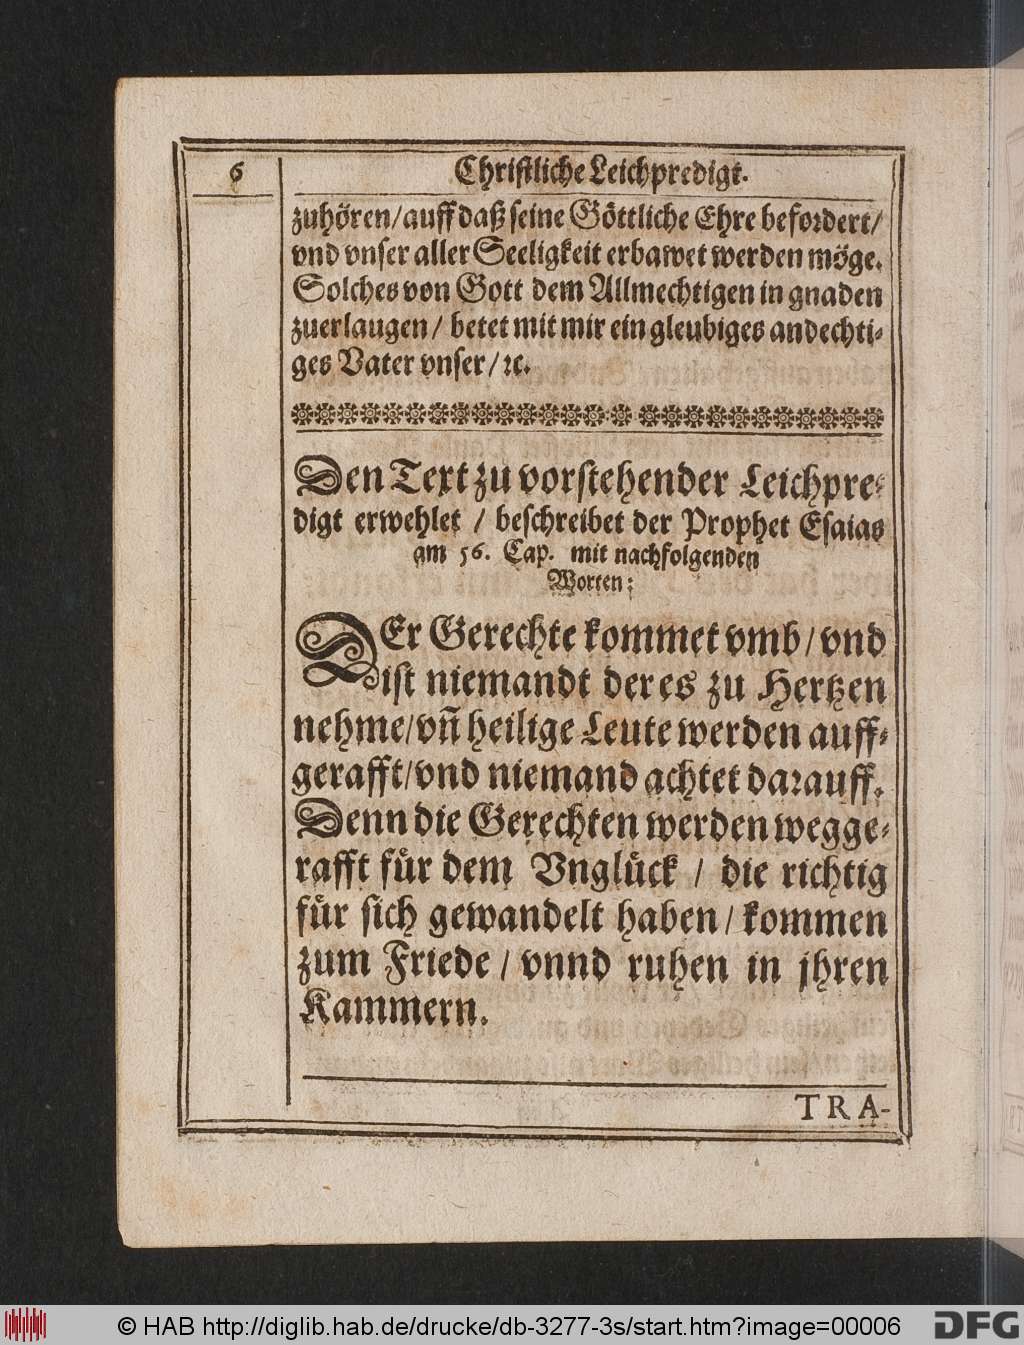 6
Christliche Leichpredigt.
zuhören/auff daß seine Göttliche Ehre befordert/
vnd vnser aller Seeligkeit erbawet werden möge.
Solches von Gott dem Allmechtigen in gnaden
zuerlaugen/ betet mit mir ein gleubiges andechti-
ges Vater vnser/ ꝛc.
Den Text zu vorstehender Leichpre-
digt erwehlet / beschreibet der Prophet Esaias
am 56. Cap. mit nachfolgenden
Worten:
DEr Gerechte kommet vmb/ vnd
ist niemandt der es zu Hertzen
nehme/vn̄ heilige Leute werden auff-
gerafft/vnd niemand achtet darauff.
Denn die Gerechten werden wegge-
rafft für dem Vnglück / die richtig
für sich gewandelt haben/ kommen
zum Friede / vnnd ruhen in jhren
Kammern.
TRA-
© HAB http://diglib.hab.de/drucke/db-3277-3s/start.htm?image=00006
DFG